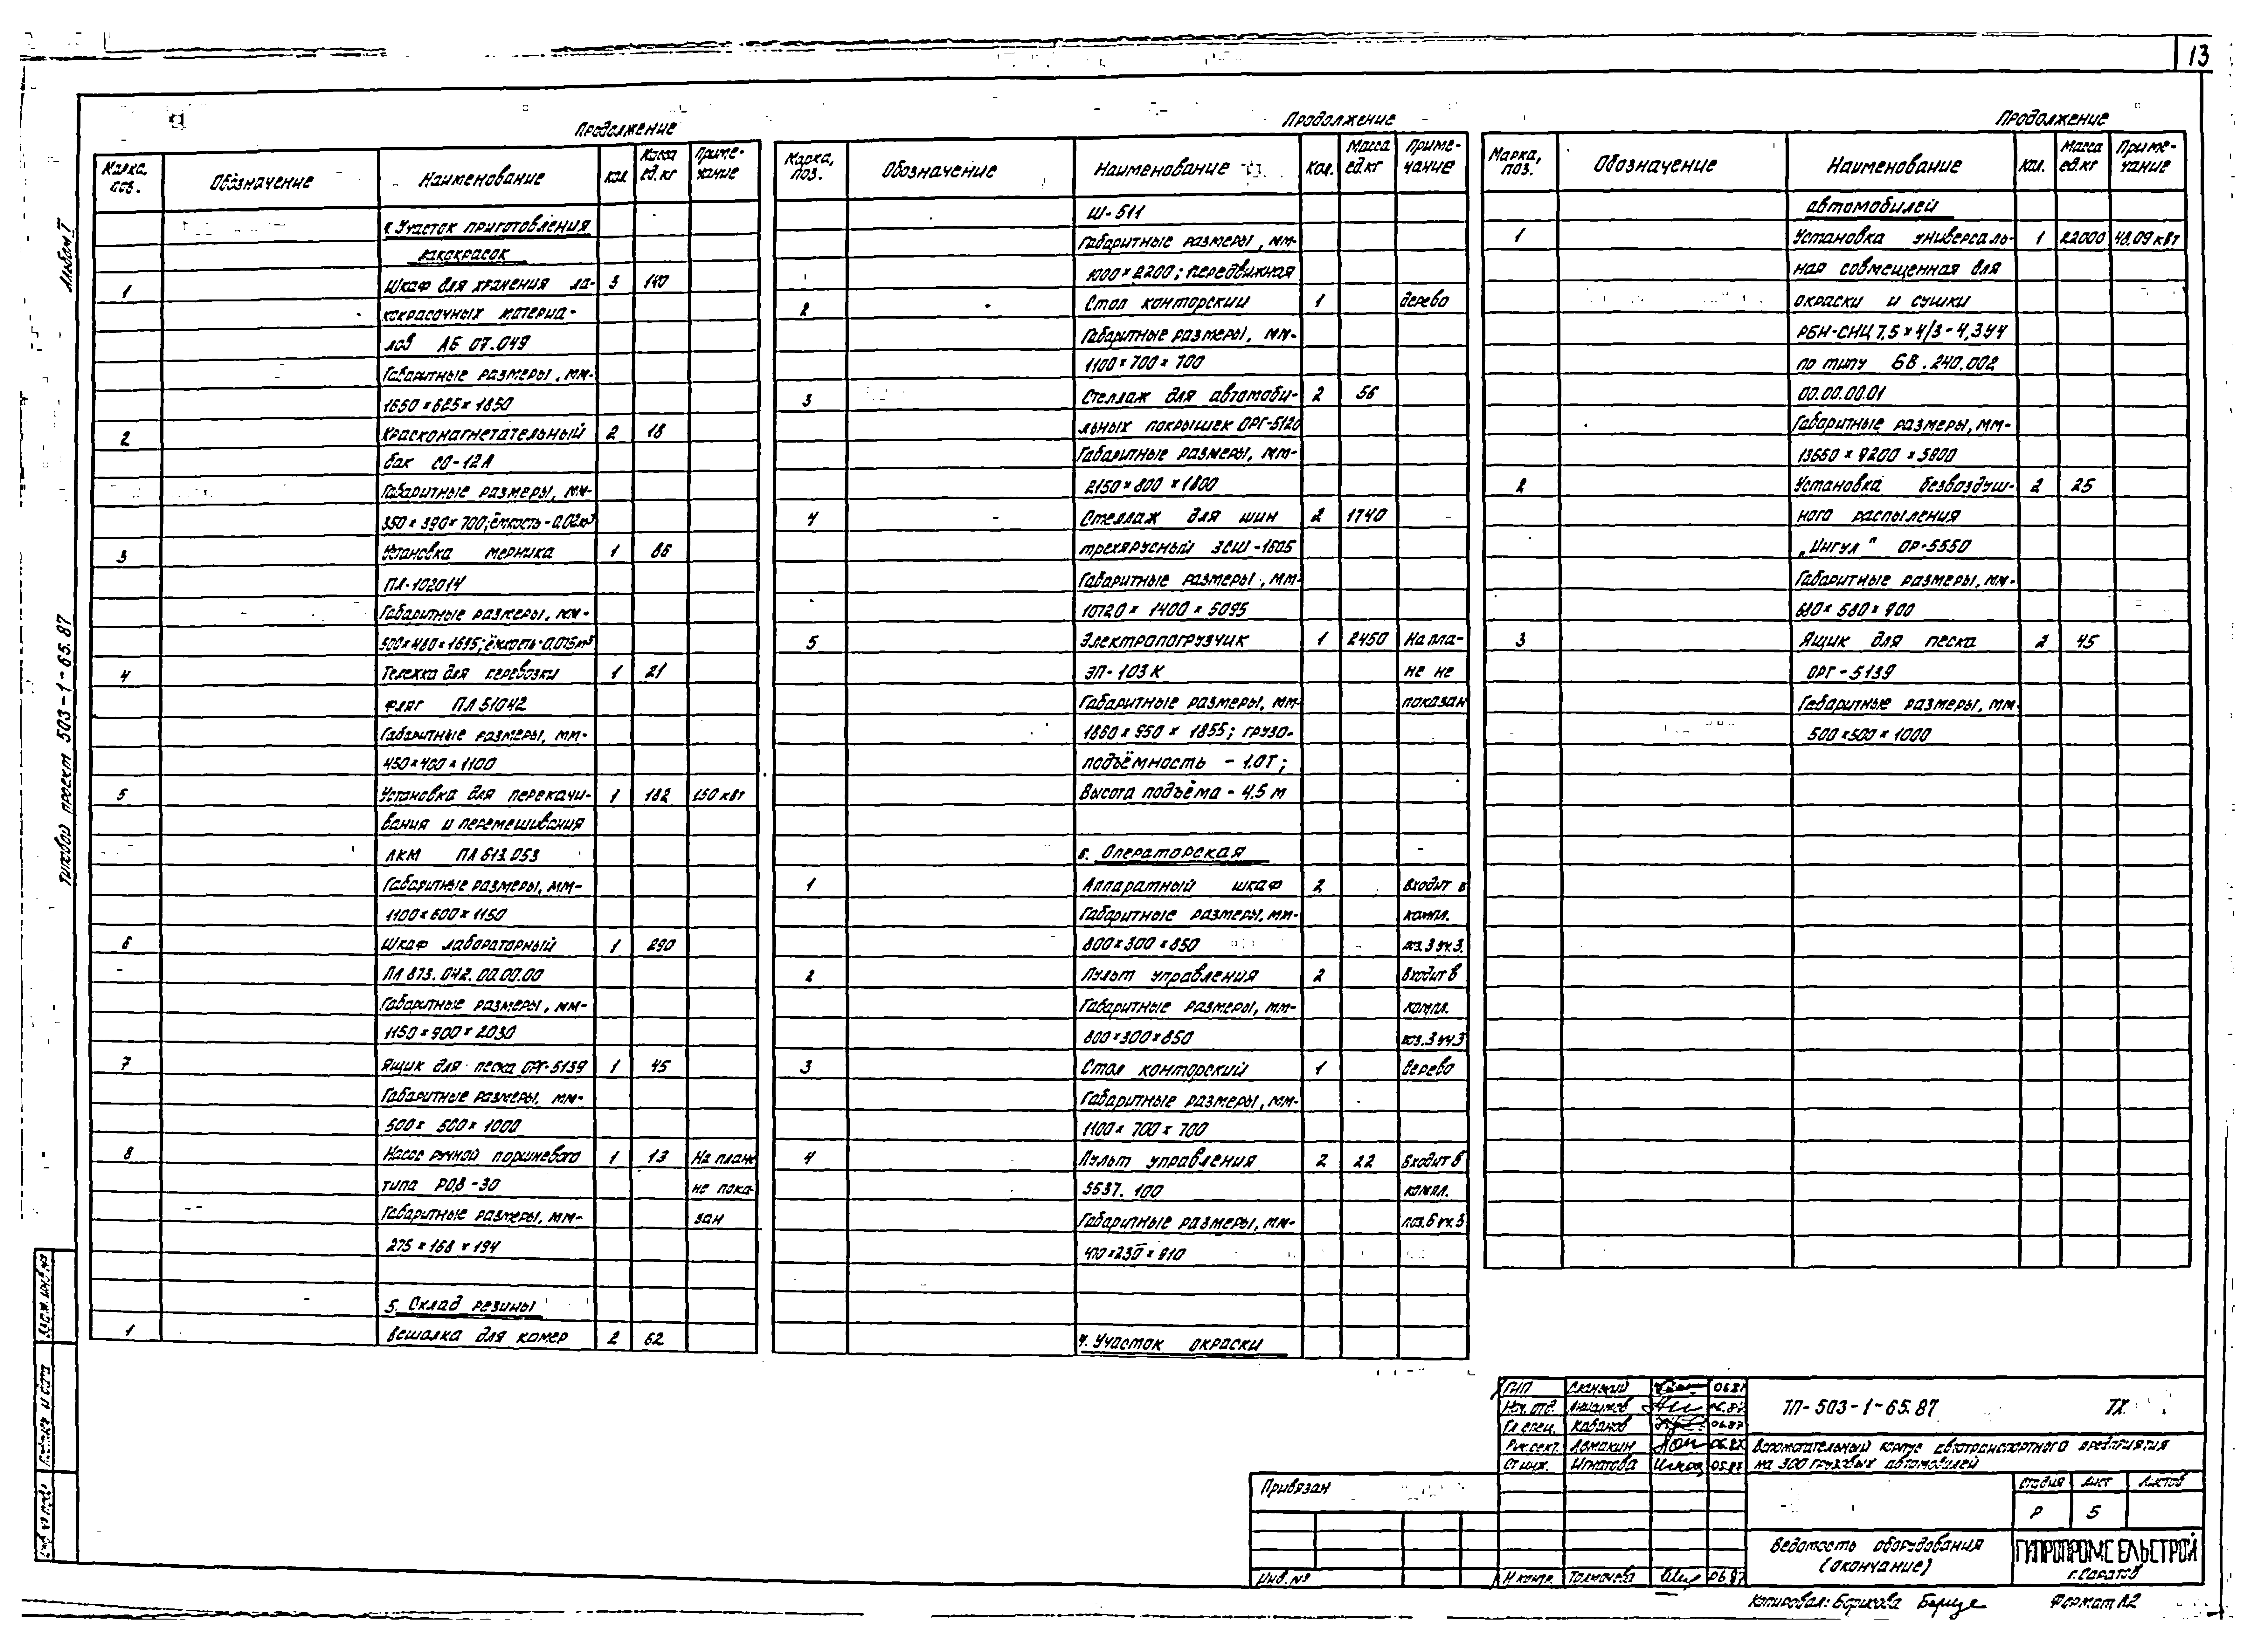 13
Продолжение
Марка, поз. Обозначение Наименование Кол. Масса ед.кг Примечание
Участок приготовления
лакокрасок
1 Шкаф для хранения ла- 3 140
кокрасочных материа-
лов АБ 07.049
Габаритные размеры, мм-
1650×625×1850
2 Красконагнетательный 2 18
бак СО-12А
Габаритные размеры, мм-
350×390×700; ёмкость-0,02м³
3 Установка мерника 1 86
ПЛ-102014
Габаритные размеры, мм-
500×480×1695; ёмкость-0,075м³
4 Тележка для перевозки 1 21
фляг ПЛ 51042
Габаритные размеры, мм-
450×400×1100
5 Установка для перекачи- 1 182 1,50 кВт
вания и перемешивания
ЛКМ ПЛ 613.053
Габаритные размеры, мм-
1100×600×1150
6 Шкаф лабораторный 1 290
ПЛ 873.042.00.00.00
Габаритные размеры, мм-
1150×900×2030
7 Ящик для песка ОРГ-5139 1 45
Габаритные размеры, мм-
500×500×1000
8 Насос ручной поршневого 1 13 На плане
типа РО,8-30 не пока-
Габаритные размеры, мм- зан
275×168×194
5. Склад резины
1 Вешалка для камер 2 62
Продолжение
Марка, поз. Обозначение Наименование Кол. Масса ед.кг Примечание
Ш-511
Габаритные размеры, мм-
1000×2200; передвижная
2 Стол конторский 1 дерево
Габаритные размеры, мм-
1100×700×700
3 Стеллаж для автомоби- 2 56
льных покрышек ОРГ-5120
Габаритные размеры, мм-
2150×800×1800
4 Стеллаж для шин 2 1740
трехярусный 3СШ-1605
Габаритные размеры, мм-
10720×1400×5095
5 Электропогрузчик 1 2450 На пла-
ЭП-103К не не
Габаритные размеры, мм- показан
1860×950×1855; грузо-
подъёмность - 1.0т;
Высота подъёма - 4,5 м
6. Операторская
1 Аппаратный шкаф 2 Входит в
Габаритные размеры, мм- компл.
800×300×850 поз.3 уч.3.
2 Пульт управления 2 Входит в
Габаритные размеры, мм- компл.
800×300×850 поз.3 уч.3
3 Стол конторский 1 Дерево
Габаритные размеры, мм-
1100×700×700
4 Пульт управления 2 22 Входит в
5537.100 компл.
Габаритные размеры, мм- поз.6 уч.3
470×230×910
7. Участок окраски
Продолжение
Марка, поз. Обозначение Наименование Кол. Масса ед.кг Примечание
автомобилей
1 Установка универсаль- 1 22000 48.09 кВт
ная совмещенная для
окраски и сушки
РБН-СНЦ 7,5×4/3-4,3У4
по типу БВ.240.002
00.00.00.01
Габаритные размеры, мм-
13660×9200×5800
2 Установка безвоздуш- 2 25
ного распыления
„Ингул" ОР-5550
Габаритные размеры, мм-
680×580×900
3 Ящик для песка 2 45
ОРГ-5139
Габаритные размеры, мм
500×500×1000
Альбом I
Типовой проект 503-1-65.87
Взам. инв. №
Подпись и дата
Инв. № подл.
Привязан
Инв. №
ГИП 06.87
Нач. отд. Анисимов 06.87
Гл. спец. Кабанов 06.87
Рук. сект. Ломакин 06.87
Ст. инж. Игнатова 06.87
Н. контр. Толмачева 06.87
ТП-503-1-65.87 ТХ
Вспомогательный корпус автотранспортного предприятия
на 300 грузовых автомобилей
Стадия Лист Листов
Р 5
Ведомость оборудования
(окончание)
ГИПРОПРОМСЕЛЬСТРОЙ
г. Саратов
Копировал: Борикова
Формат А2